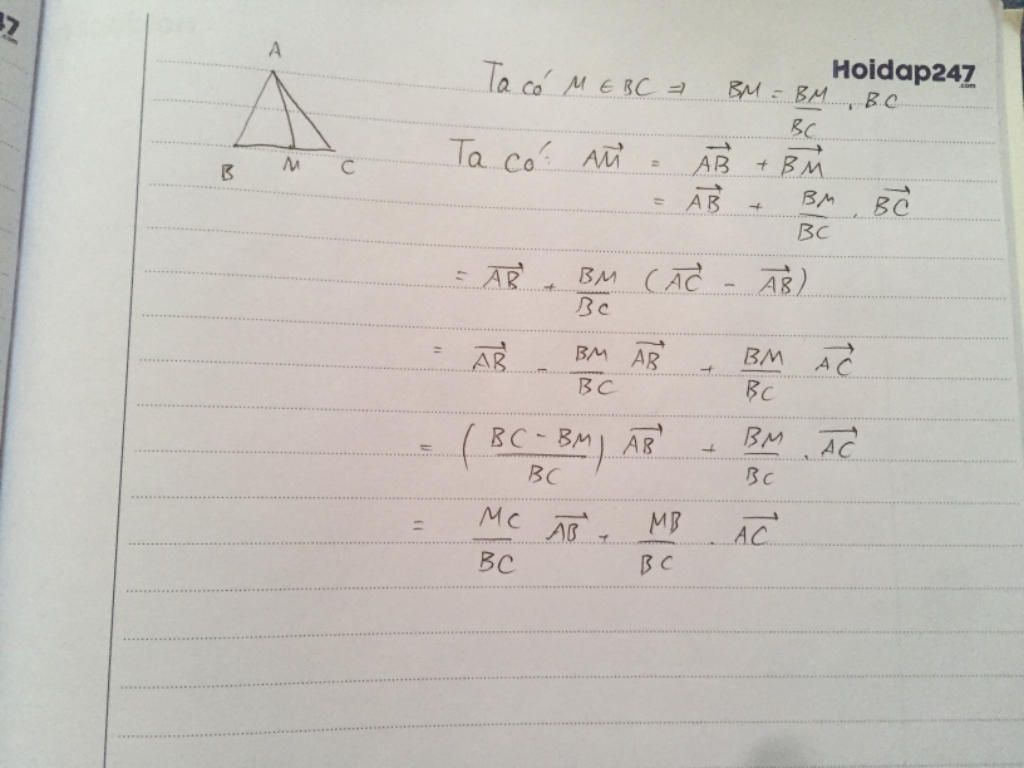 47
.com
Hoidap247
.com
A
B M C
Ta có M ∈ BC ⇒ BM = BM/BC . BC
Ta có: \overrightarrow{AM} = \overrightarrow{AB} + \overrightarrow{BM}
= \overrightarrow{AB} + BM/BC . \overrightarrow{BC}
= \overrightarrow{AB} + BM/BC (\overrightarrow{AC} - \overrightarrow{AB})
= \overrightarrow{AB} - BM/BC \overrightarrow{AB} + BM/BC \overrightarrow{AC}
= ((BC - BM)/BC) \overrightarrow{AB} + BM/BC . \overrightarrow{AC}
= MC/BC \overrightarrow{AB} + MB/BC . \overrightarrow{AC}